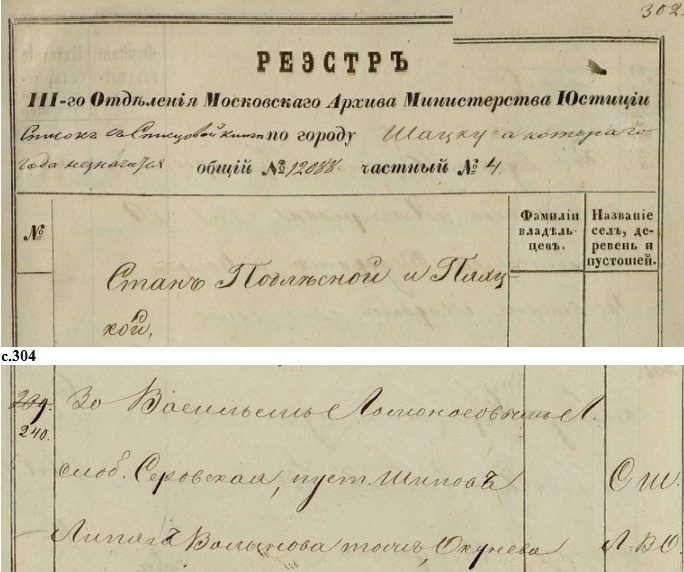 302.
РЕЭСТРЪ
III-го Отдѣленія Московскаго Архива Министерства Юстиціи
Списокъ съ Писцовой книги по городу Шацку а котораго
года незначится общій № 12088. частный № 4.
№
Фамиліи владѣль-
цевъ.
Названіе
селъ, де-
ревень и
пустошей.
Станъ Подлѣсской и
кой,
с.304
239.
240.
За Васильемъ Ломоносовымъ Л.
слоб. Серовская, пуст. Шиповъ С Ш.
Липягъ Волынова тожъ, Окунева Л. В О.